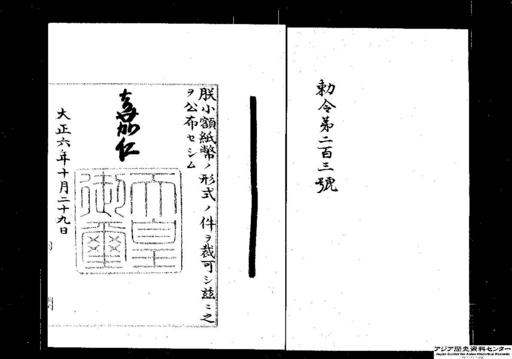 勅令第二百三號
朕小額紙幣ノ形式ノ件ヲ裁可シ茲ニ之
ヲ公布セシム
嘉仁
天皇御璽
大正六年十月二十九日
アジア歴史資料センター
Japan Center for Asian Historical Records